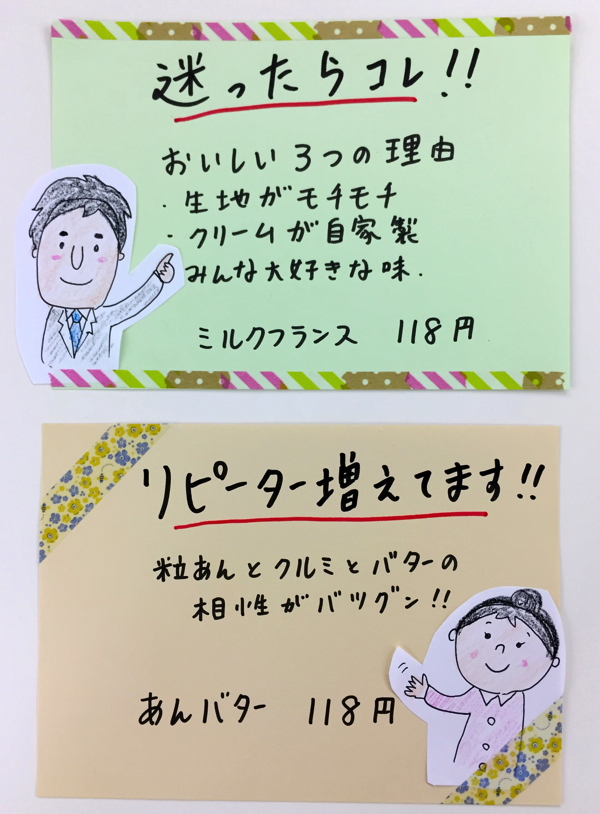 迷ったらコレ!!
おいしい3つの理由
・生地がモチモチ
・クリームが自家製
みんな大好きな味.
ミルクフランス 118円
リピーター増えてます!!
粒あんとクルミとバターの
相性がバツグン!!
あんバター 118円